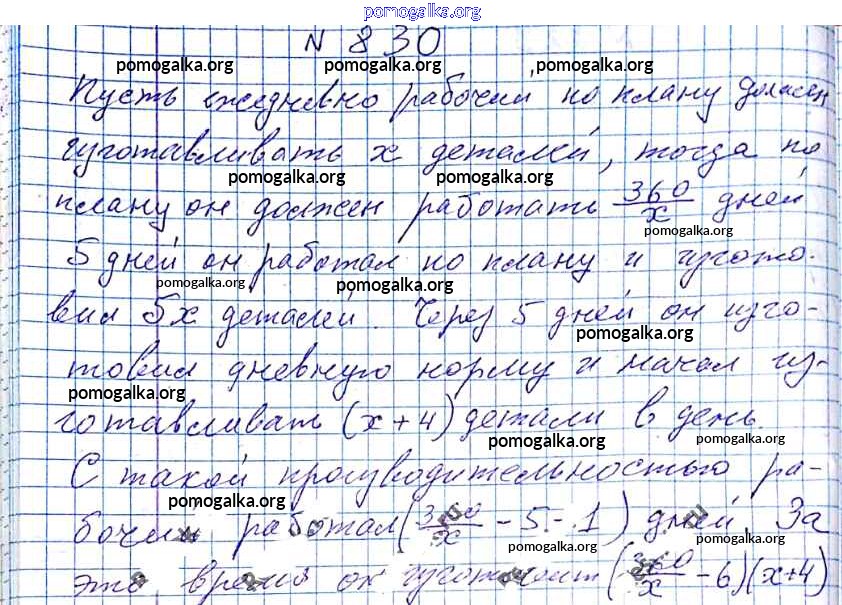 pomogalka.org
N 830
pomogalka.org pomogalka.org pomogalka.org
Пусть ежедневно рабочий по плану должен
изготавливать x деталей, тогда по
pomogalka.org pomogalka.org
плану он должен работать 360/x дней
pomogalka.org
5 дней он работал по плану и изгото-
pomogalka.org pomogalka.org
вил 5x деталей. Через 5 дней он изго-
pomogalka.org
товил дневную норму и начал из-
pomogalka.org
готавливать (x+4) детали в день.
pomogalka.org pomogalka.org
С такой производительностью ра-
pomogalka.org
бочий работал (360/x - 5 - 1) дней. За
pomogalka.org
это время он изготовит (360/x - 6)(x+4)